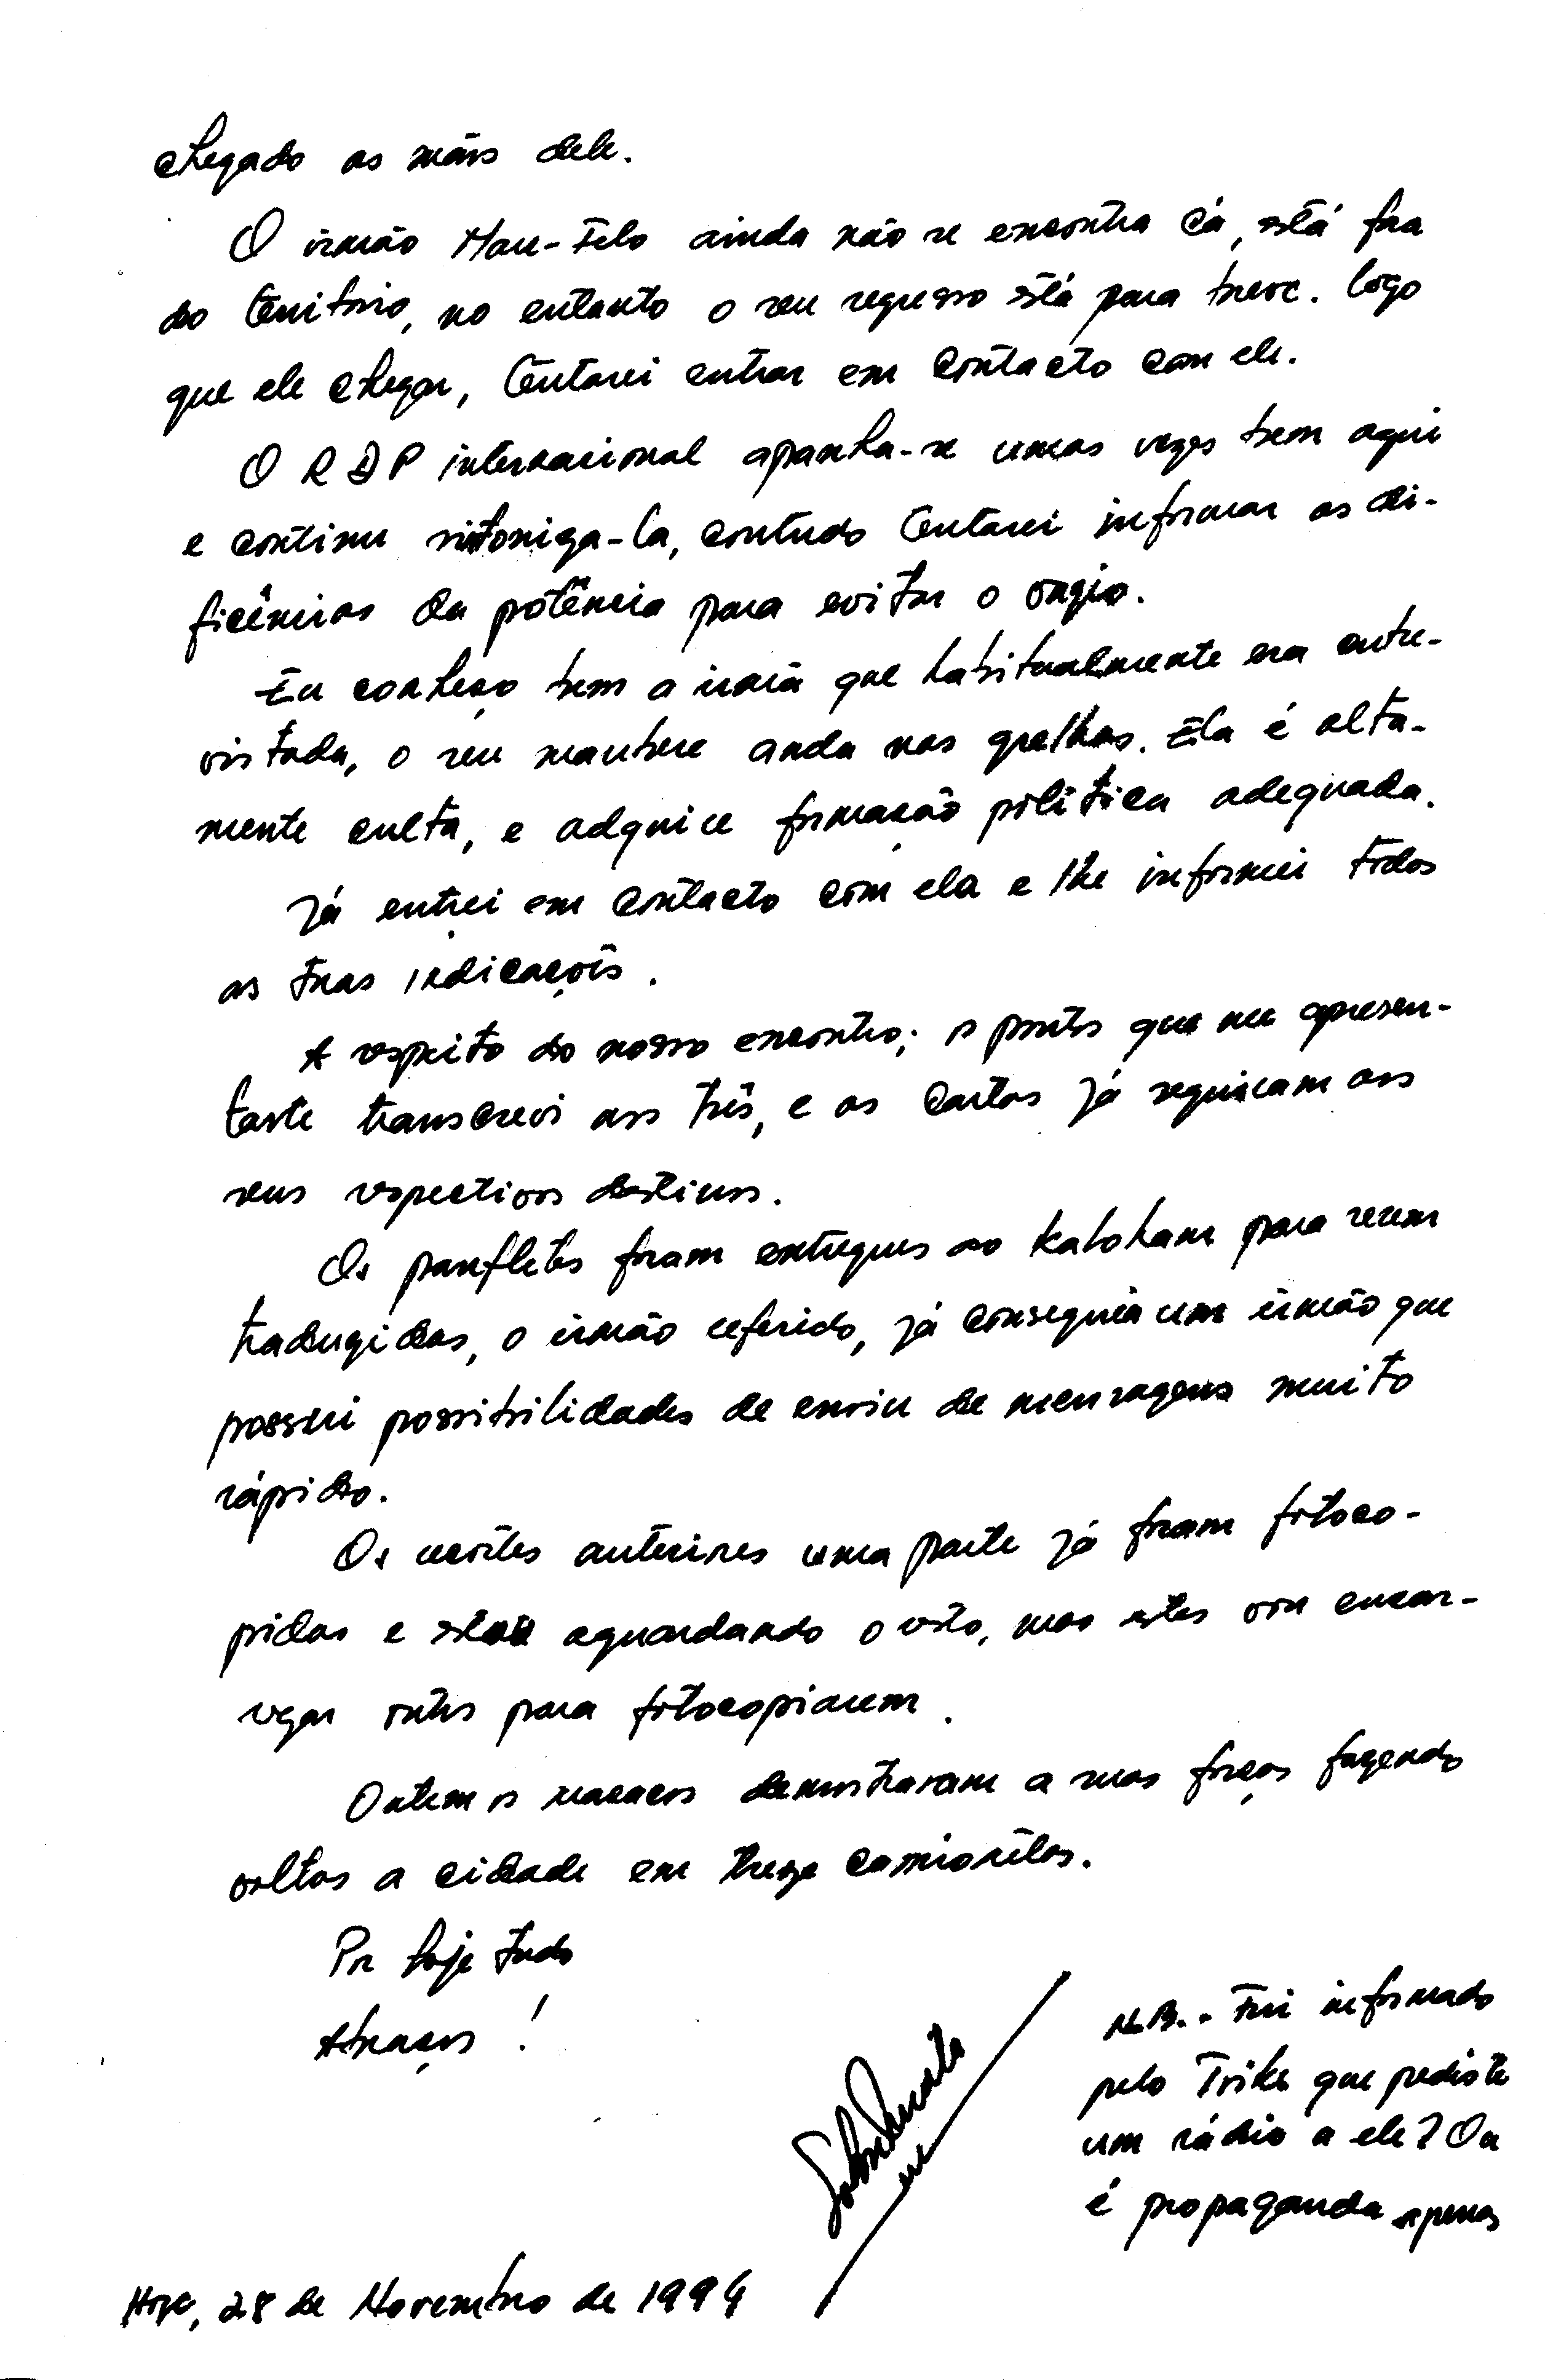 chegado as mãos dele.
O irmão Mau-Felo ainda não se encontra cá, está fora
do território, no entanto o seu regresso está para breve. Logo
que ele chegar, tentarei entrar em contacto com ele.
O RDP internacional apanha-se umas vezes bem aqui
e continu sintoniza-la, contudo tentarei informar as di-
ficiências da potência para evitar o vazio.
Eu conheço bem a irmã que habitualmente era entre-
vistada, o seu mambere anda nas grelhas. Ela é alta-
mente culta, e adquire formação politica adequada.
Já entrei em contacto com ela e lhe informei todas
as tuas indicações.
A respeito do nosso encontro; os pontos que me apresen-
taste transcrevi aos três, e as cartas já seguiram aos
seus respectivos destinos.
Os panfletos foram entregues ao Kaloham para serem
traduzidos, o irmão referido, já conseguiu um irmão que
possui possibilidades de enviu de mensagens muito
rápido.
Os recortes anteriores uma parte já foram fotoco-
pidas e estão aguardando o resto, mas estes vou encar-
regar outros para fotocopiarem.
Ontem os macacos demostraram a suas forças fazendo
voltas a cidade em treze camionetas.
Por hoje tudo
Abraços !
N.B. - Fui informado
pelo Trike que pediste
um rádio a ele? Ou
é propaganda apenas
Hoje, 28 de Novembro de 1994